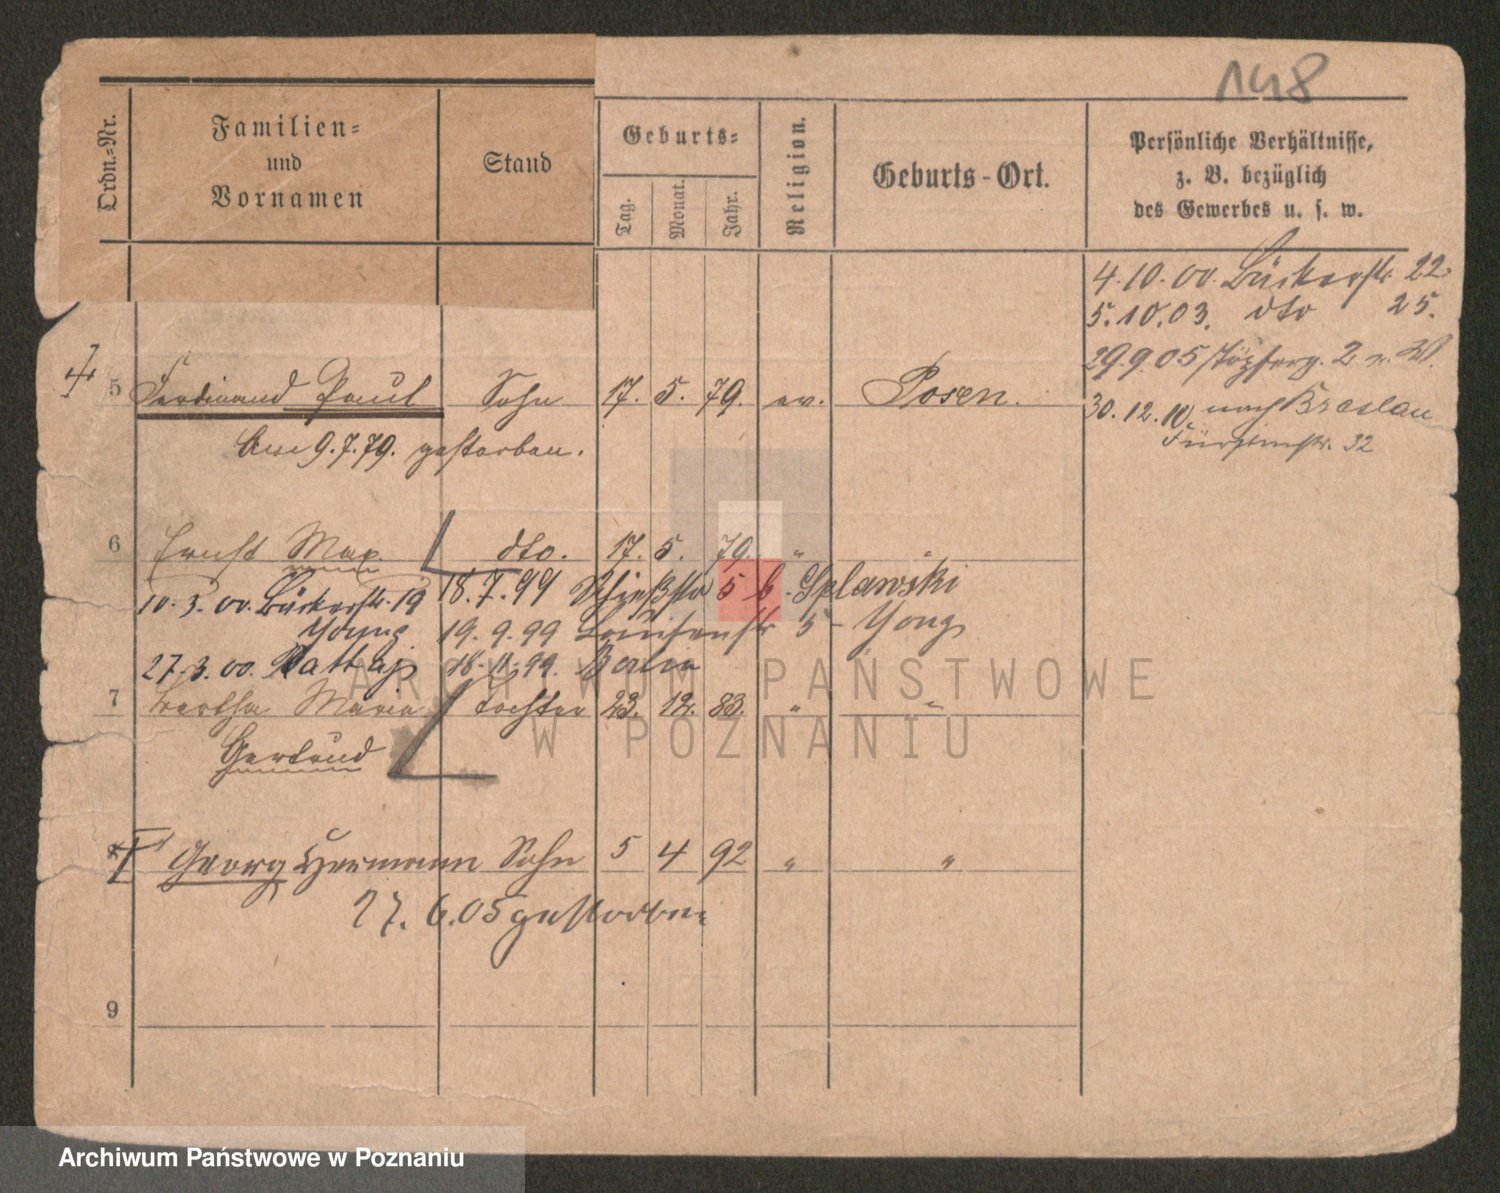 148
Ordn.-Nr.
Familien-
und
Vornamen
Stand
Geburts-
Tag.
Monat.
Jahr.
Religion.
Geburts-Ort.
Persönliche Verhältnisse,
z. B. bezüglich
des Gewerbes u. s. w.
4.10.00. Bückerstr. 22.
5.10.03. dto 25.
29.9.05 2. n. W.
30.12.10 nach Breslau
32
5 Ferdinand Paul Sohn 17. 5. 79. ev. Posen.
Am 9.7.79. gestorben.
6 Ernst Max dto. 17. 5. 79. " "
10.3.00. Bückerstr. 19 18.7.99 5 b. Splawski
Young 19.9.99 Louisenstr 5 - Yong
27.3.00. Rattaj 18.11.99. Berlin
7 Bertha Maria Tochter 23. 12. 83. " "
Gertrud
Georg Hermann Sohn 5 4 92 " "
27.6.05 gestorben
9
ARCHIWUM PAŃSTWOWE
W POZNANIU
Archiwum Państwowe w Poznaniu